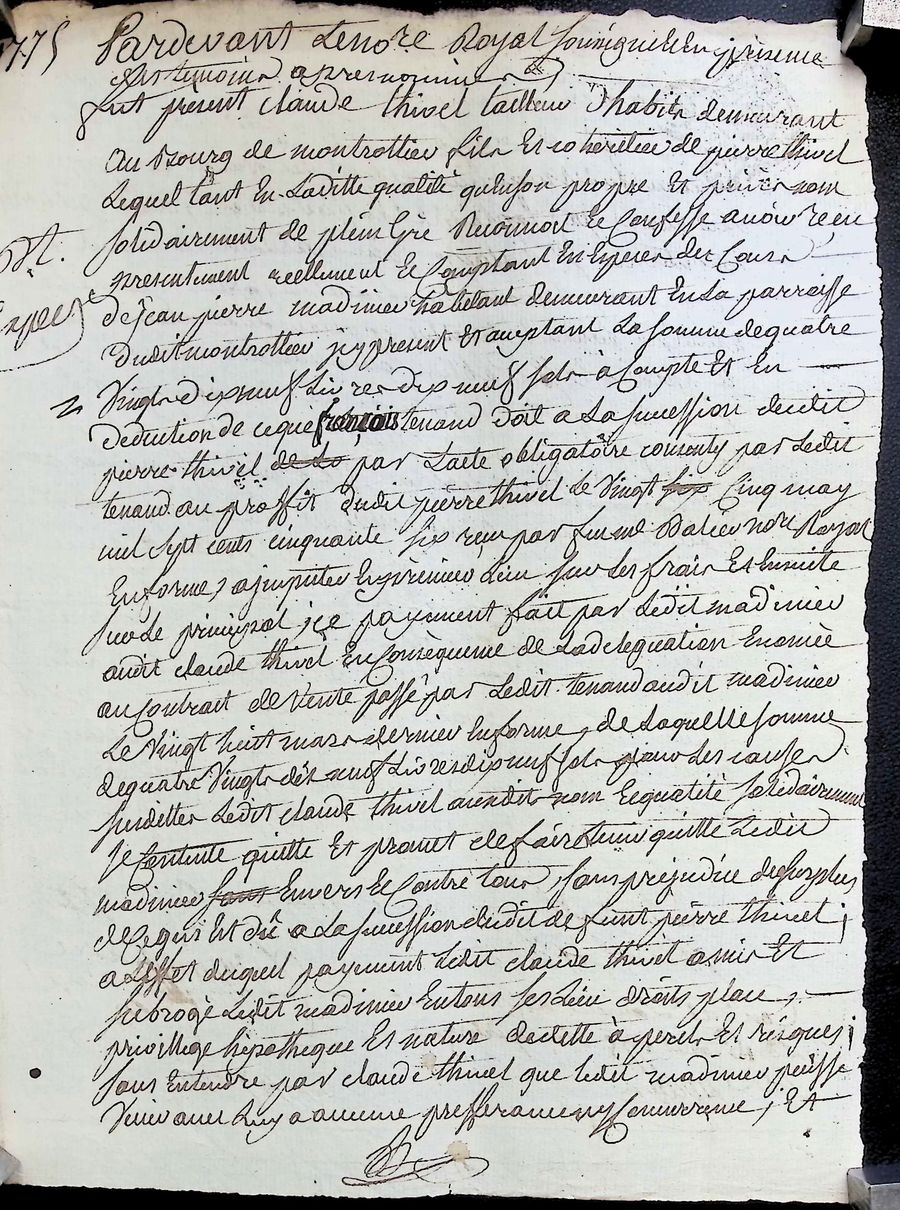 775
Pardevant Lenore Royal soussigné et En presence
des temoins apres nommes
fut présent claude thivel tailleur d'habits demeurant
au bourg de montrottier fils Et coheritier de pierre thivel
Lequel tant En Laditte qualité qu'en son propre Et privé nom
solidairement de plein gré Reconnoit Et Confesse avoir reçu
presentement reellement Et Comptant En Especes des Cours
de jean pierre madinier habitant demeurant En La parroisse
dudit montrottier jcy present Et acceptant La somme de quatre
Vingts dix neuf Livres dix neuf sols à Compte Et En
deduction de ceque françois tenand doit a La succession dudit
pierre thivel de La par Lacte obligatoire consenty par Ledit
tenand au proffit dudit pierre thivel Le Vingt six Cinq may
mil sept cents cinquante six reçu par feu me nore Royal
En forme, a jmputer En premier Lieu sur Les frais Et Ensuite
sur Le principal, jce payement fait par Ledit madinier
audit claude thivel En Conséquence de La delegation Enoncée
au Contrait de Vente passé par Ledit tenand audit madinier
Le Vingt huit mars dernier En forme, de Laquelle somme
de quatre Vingts dix neuf Livres dix neuf sols pour Les causes
susdittes Ledit claude thivel ausdits nom Et qualité solidairement
se Contente quitte Et promet de faire tenir quitte Ledit
madinier sans Envers Et Contre tous, sans préjudice de surplus
de Ce qui Est dû a La succession dudit defunt pierre thivel;
a Leffet duquel payement Ledit claude thivel a mis Et
subrogé Ledit madinier En tous ses Lieu droits place,
privillege hipotheque Et nature de dette à perils Et risques;
sans Entendre par claude thivel que ledit madinier puisse
Venir avec Luy a aucune prefferance ny Concurrence, Et